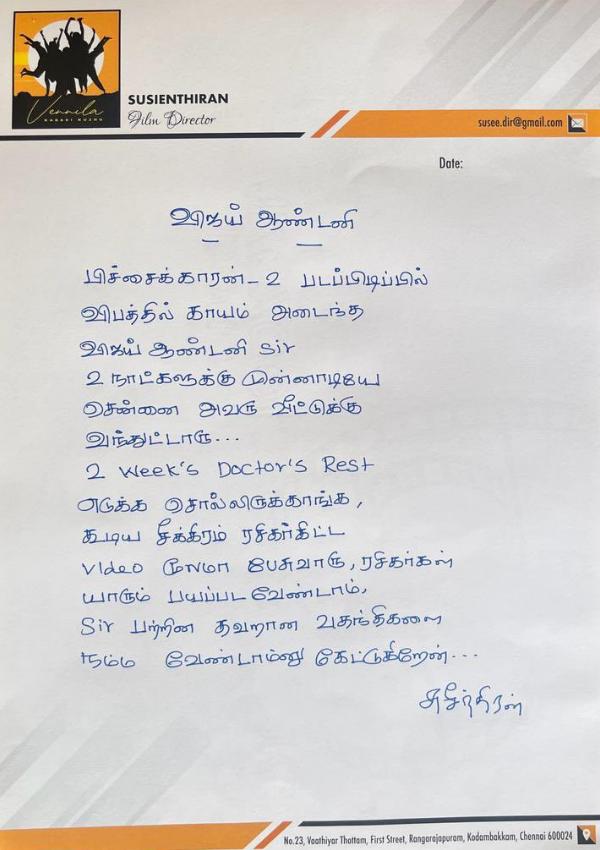 Vennila
KABADI KUZHU
SUSIENTHIRAN
Film Director
susee.dir@gmail.com
Date:
விஜய் ஆண்டனி
பிச்சைக்காரன் - 2 படப்பிடிப்பில்
விபத்தில் காயம் அடைந்த
விஜய் ஆண்டனி Sir
2 நாட்களுக்கு முன்னாடியே
சென்னை அவரு வீட்டுக்கு
வந்துட்டாரு...
2 Week's Doctor's Rest
எடுக்க சொல்லிருக்காங்க,
கூடிய சீக்கிரம் ரசிகர்கிட்ட
Video மூலமா பேசுவாரு, ரசிகர்கள்
யாரும் பயப்பட வேண்டாம்,
Sir பற்றின தவறான வதந்திகளை
நம்ப வேண்டாம்னு கேட்டுகிறேன்...
சுசீந்திரன்
No.23, Vaathiyar Thottam, First Street, Rangarajapuram, Kodambakkam, Chennai 600024